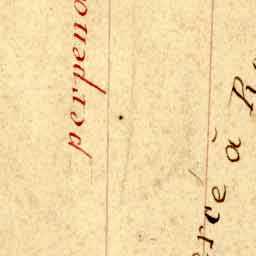 perpend
ercé à R